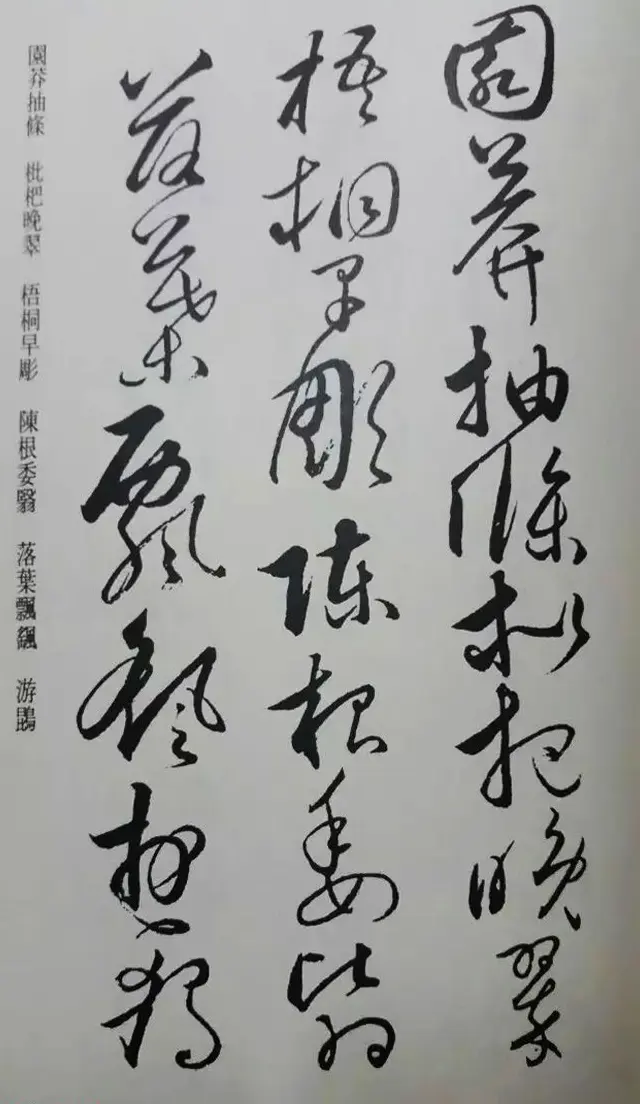 園莽抽條枇杷晚翠
梧桐早彫陳根委翳
落葉飄颻游鵾
園莽抽條　枇杷晚翠　梧桐早彫　陳根委翳　落葉飄颻　游鵾